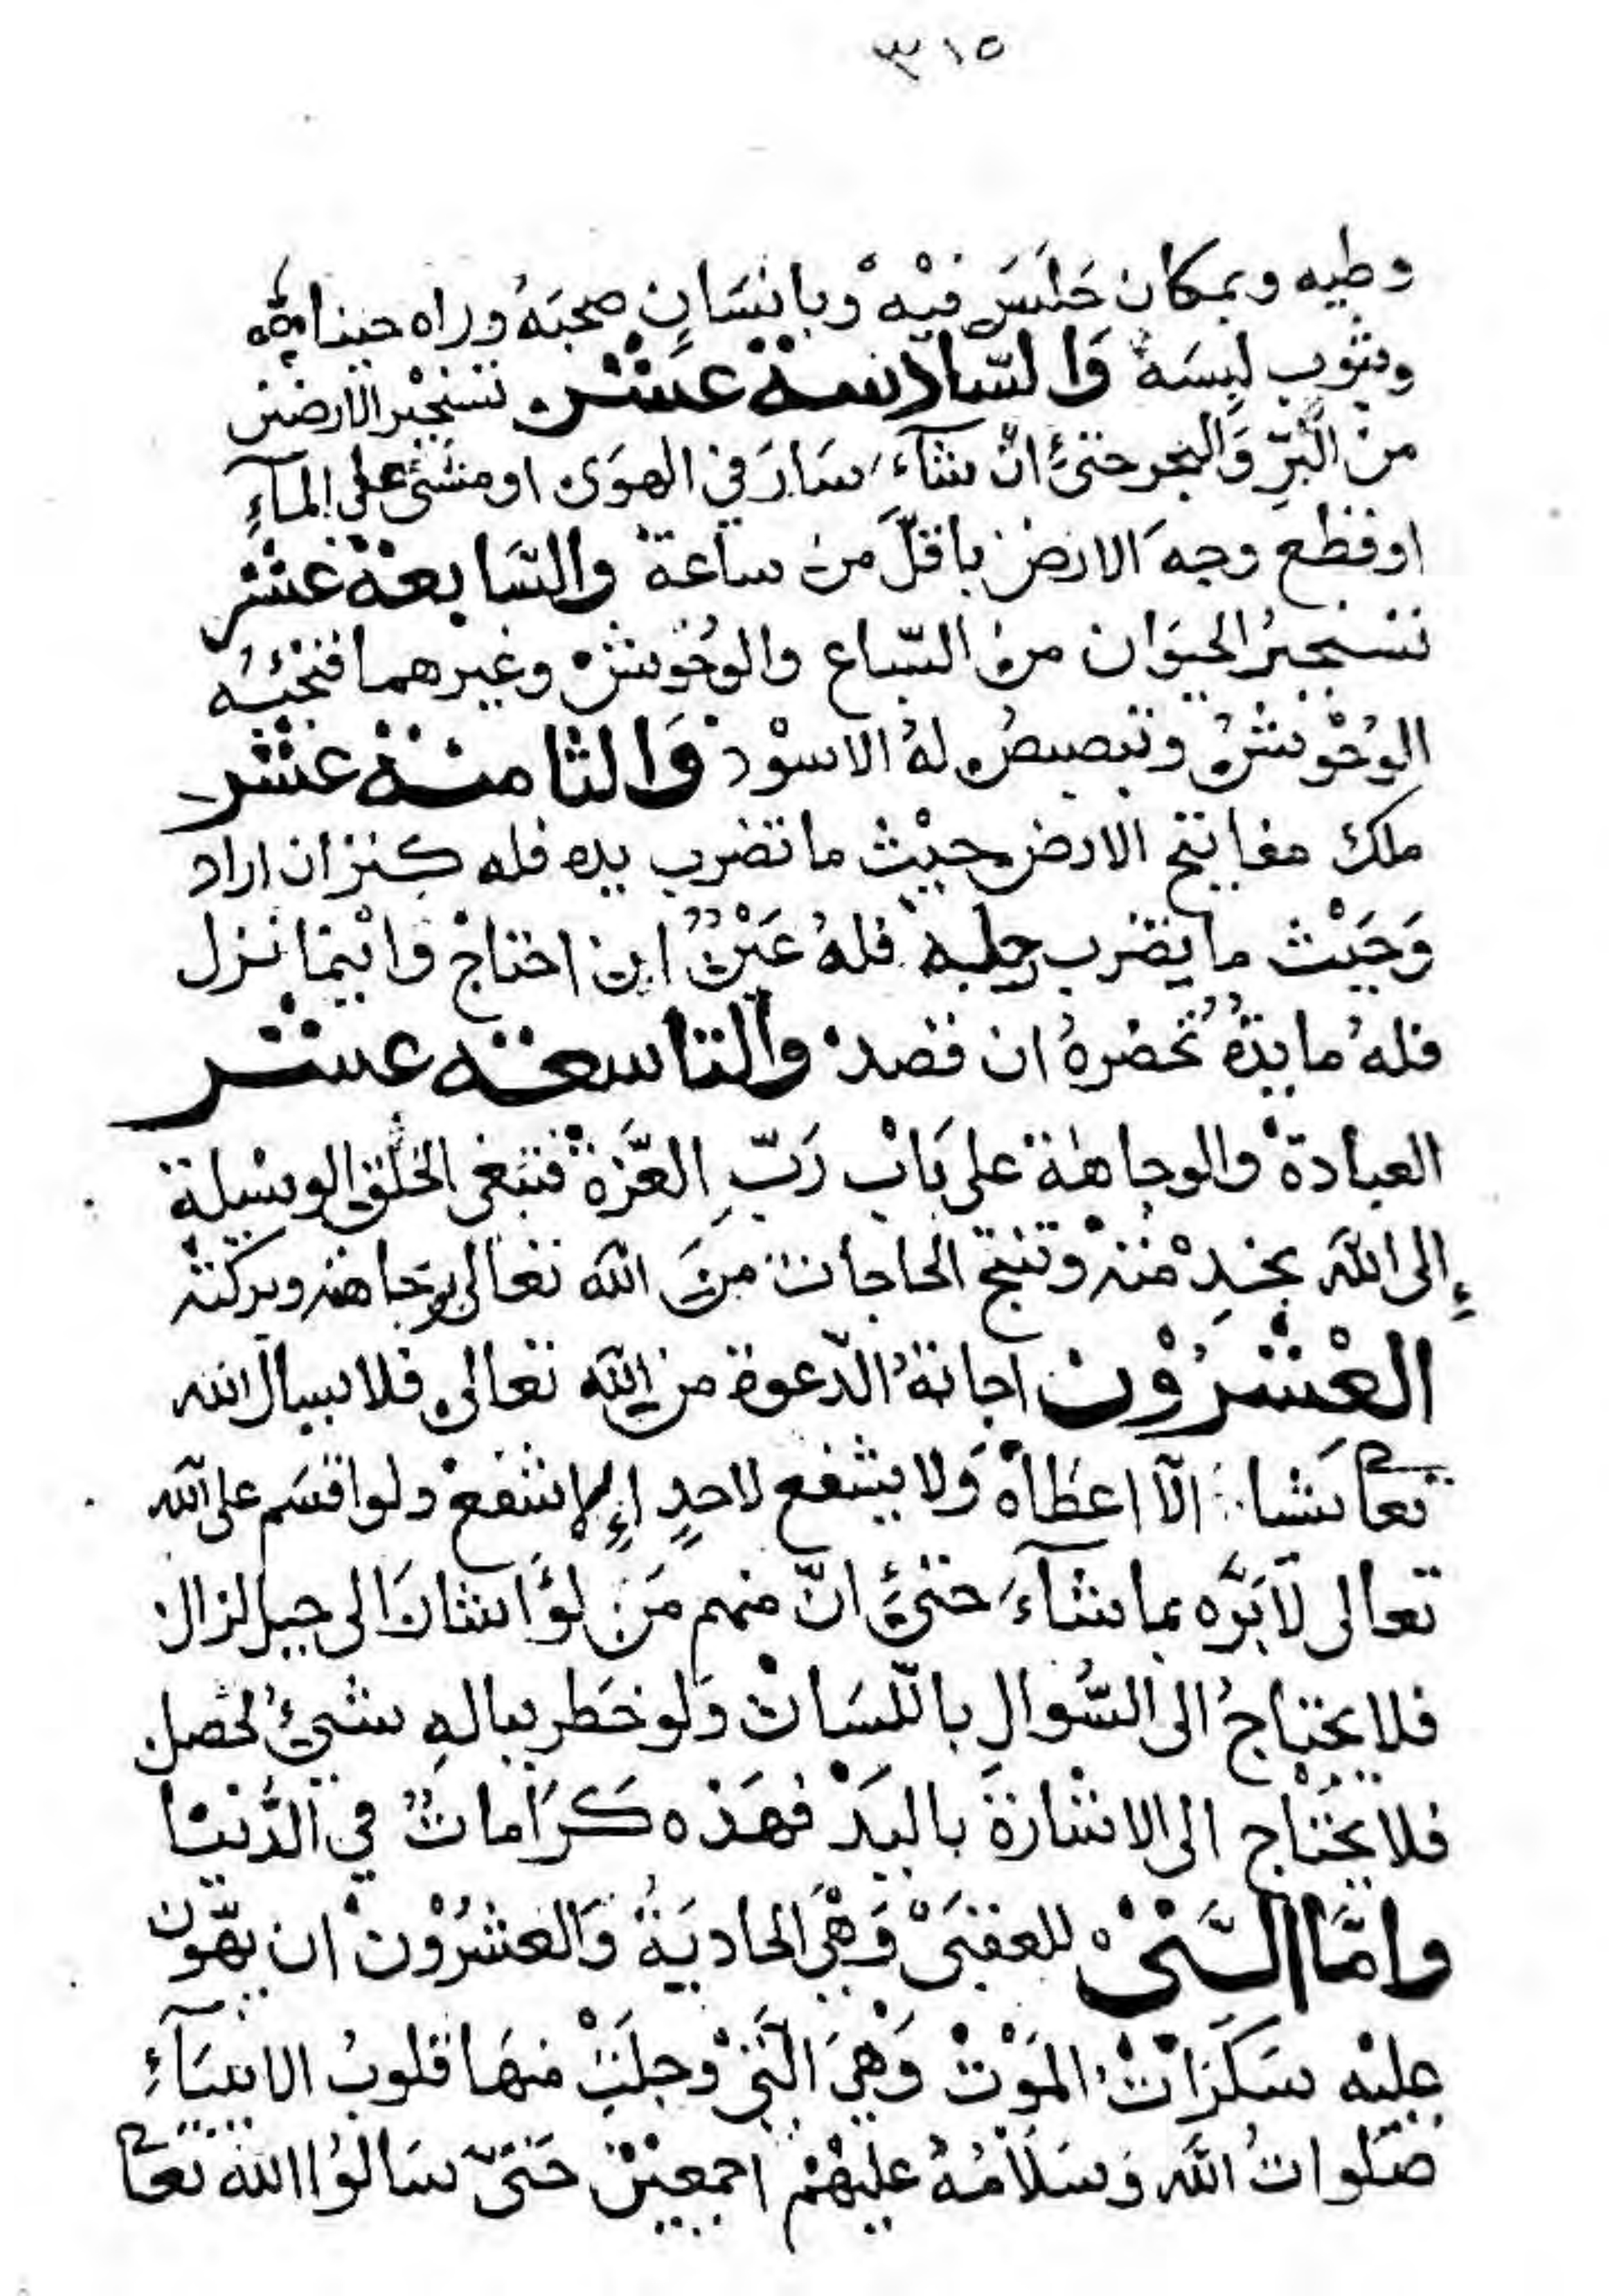 ٣١٥
وطيه وبمكان جَلَسَ فيْه وبانسَانٍ صحبَهُ وراه حينا
وبثوب لبِسَهُ وَالسّادسة عَشر تسخير الارض
من البَرِّ وَالبحر حتىَّ انْ شآءَ سَارَ في الهوَى او مشَى على المآءِ
او قطع وجه الارض باقلَّ من ساعة والسَّابعة عشر
تسخيرُ الحيَوَان منَ السّباع والوُحُوش وغيرهما فتحبُّه
الوُحُوْشُ وتبصبصُ لهُ الاسوْد وَالثامنة عشر
ملك مفاتيح الارض حيْث ما تضرب يده فله كنز ان اراد
وَحَيْث ما يضرب رجله فلهُ عَيْنٌ اين احتاج وايْنما نزل
فلهُ مايدَةٌ تُحضرهُ ان قصد والتاسعة عشر
العبادة والوجاهة على بَاب رَبِّ العَّزة فتبغى الخلق الوسيلة
إلى الله بخدِمْته وتنجح الحاجات منَ الله تعالى بوَجاهته وبركته
العشرُوْن اجابةُ الدّعوة من الله تعالى فلا يسال الله
تعا شيا الّا اعطاهْ وَلا يشفع لاحدٍ إلا شفعْ ولو اقسَم على الله
تعالى لَابَرَّه بما شآءَ حتىَّ انّ منهم مَن لوْ اشارَ الى جبل لزال
فلا يحتاجُ الى السُّوالِ باللّسَان وَلو خَطر ببالهِ شيئٌ لحصل
فلا يحتاج الى الاشارَة باليَدْ فهَذه كَرَاماتٌ في الدُّنيَا
وامَّا الَّتىْ للعقبَىْ وَهْىَ الحاديَةُ وَالعشرُوْن ان يهّون
عليْه سَكرَاتْ المَوْتْ وَهْىَ الَّتىْ وجلَتْ منهَا قلوبُ الانبيَآءِ
صَلواتُ الله وَسَلَامُهُ عليْهمْ اجمعيْن حَتىّ سَالوُا الله تعا